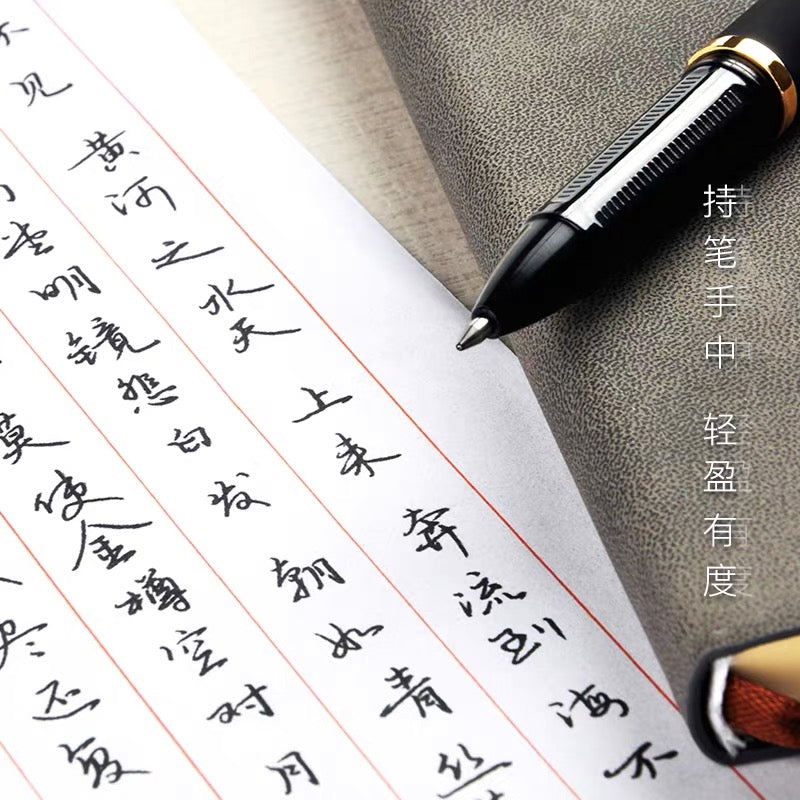 持笔手中 轻盈有度
不见黄河之水天上来奔流到海不
堂明镜悲白发朝如青丝
莫使金樽空对月
尽还复